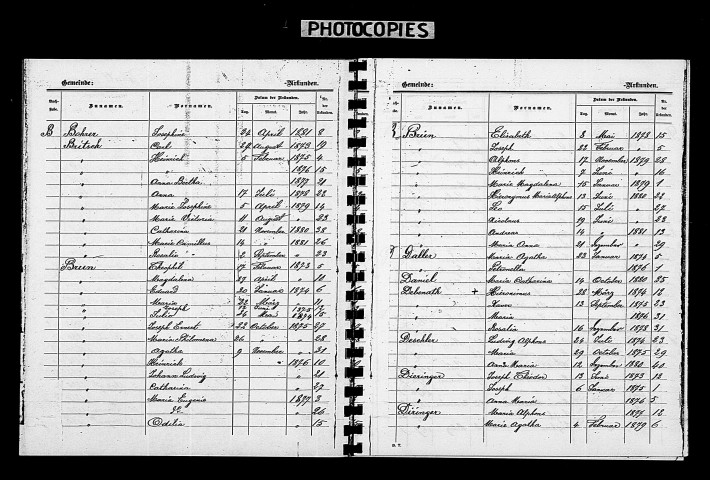 PHOTOCOPIES
Gemeinde: -Urkunden.
Buchstabe. Zunamen. Vornamen. Datum der Urkunden. Nr. der Urkunden.
Tag. Monat. Jahr.
B Bohrer Josephine 24 April 1881 8
Britsch Carl 29 August 1873 19
" Heinrich 5 Februar 1875 4
" 1876 15
" Anna Bertha 1877 21
" Anna 17 Juli 1878 22
" Marie Josephine 5 April 1879 14
" Marie Victoria 11 August " 23
" Catharina 21 November 1880 38
" Marie Camillus 14 " 1881 26
" Rosalia 2 September " 23
Brien Theophil 17 Februar 1873 5
" Magdalena 27 April " 11
" Eduard 20 Januar 1874 6
" Maria 22 März " 11
" Joseph 1875
" Julie 24 Mai 1874 15
" Joseph Ernest 22 October 1875 27
" Marie Philomena 26 " " 28
" Agatha 9 Dezember " 31
" Heinrich 1876 10
" Johann Ludwig " 21
" Catharina " 27
" Marie Eugenie 1877 3
" " 26
" Odilia " 15
Gemeinde: -Urkunden.
Zunamen. Vornamen. Datum der Urkunden. Nr. der Urkunden.
Tag. Monat. Jahr.
B Brien Elisabeth 8 Mai 1878 15
" Joseph 22 Februar " 5
" Alphons 17 November 1879 28
" Heinrich 7 Juni " 16
" Marie Magdalena 15 Januar 1879 1
" Hieronymus Maria Alphons 13 Juni 1880 24
" Leo 15 Juli " 27
" Nicolaus 19 Juni " 28
" Andreas 14 " 1881 13
" Maria Anna 21 Dezember " 29
D Daller Marie Agatha 22 Januar 1875 5
" Petronella 1876 1
Daniel Marie Catharina 14 October 1880 35
Debenath + Hieronimus 28 März 1874 12
" Xaver 13 September 1875 23
" Maria 1876 31
" Rosalia 16 Dezember 1878 31
Deschler Ludwig Alphons 24 Juli 1874 23
" Maria 29 October 1875 29
" Anna Maria 12 Dezember 1880 40
Dieringer Joseph Theodor 13 Juni 1873 12
" Joseph 6 Januar 1875 1
" Anna Maria 1876 5
Diringer Marie Alphons 1875 12
" Marie Agatha 4 Februar 1879 6